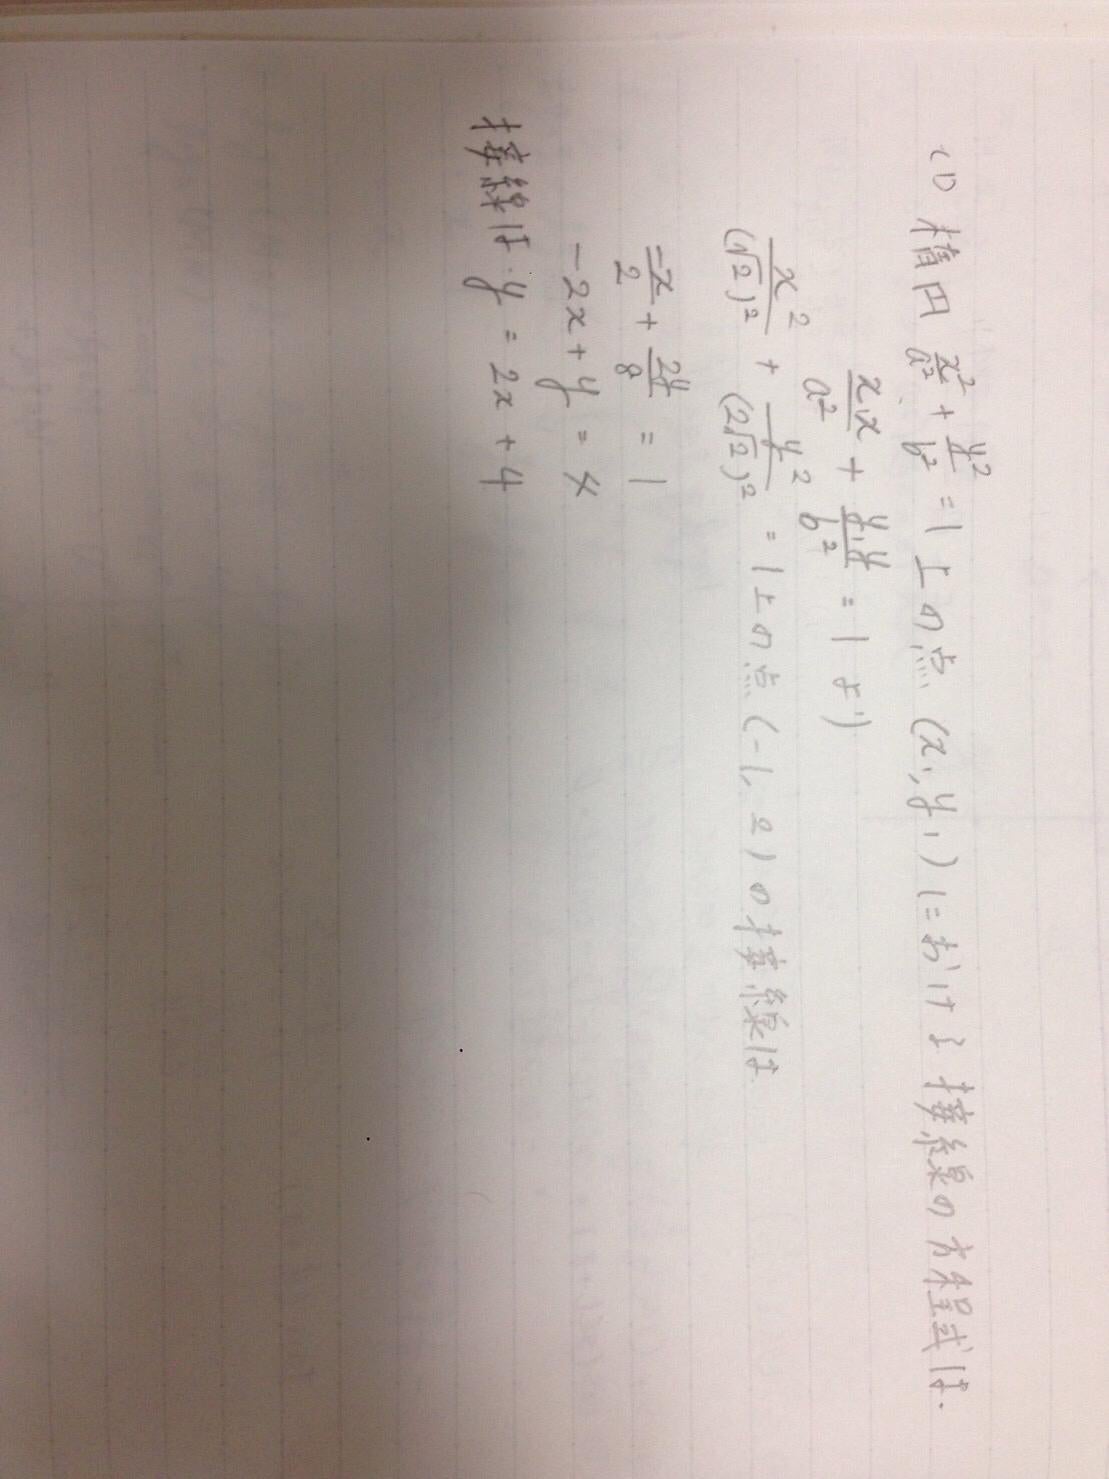 (1) 楕円 x²/a² + y²/b² = 1 上の点 (x₁, y₁) における接線の方程式は.
x₁x/a² + y₁y/b² = 1 より
x²/(√2)² + y²/(2√2)² = 1 上の点 (-1, 2) の接線は
-x/2 + 2y/8 = 1
-2x + y = 4
接線は y = 2x + 4